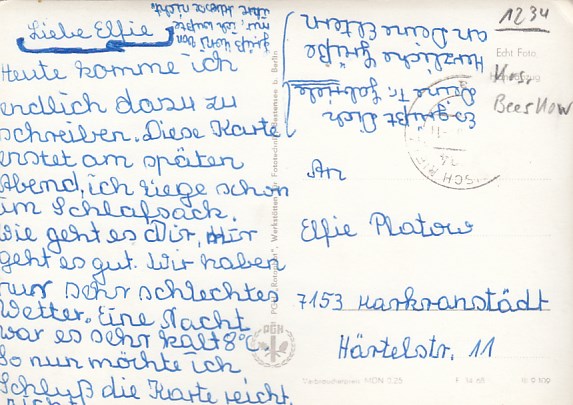 Liebe Elfie
Heute komme ich
endlich dazu zu
schreiben. Diese Karte
entstet am späten
Abend, ich liege schon
im Schlafsack.
Wie geht es Dir, mir
geht es gut. Wir haben
nur sehr schlechtes
Wetter. Eine Nacht
war es sehr kalt 8°C.
So nun möchte ich
Schluß die Karte reicht
Es grüßt Dich
Deine Fr. Gabriele
Herzliche Grüße
an Deine Eltern
grüß von
mir, ich wußte
ihre Adresse nicht.
1234
Echt Foto
Krs.
Beeskow
An
Elfie Platow
7153 Markranstädt
Härtelstr. 11
PGH
Werkstätten für Fototechnik, Bestensee b. Berlin
Verbraucherpreis MDN 0,25